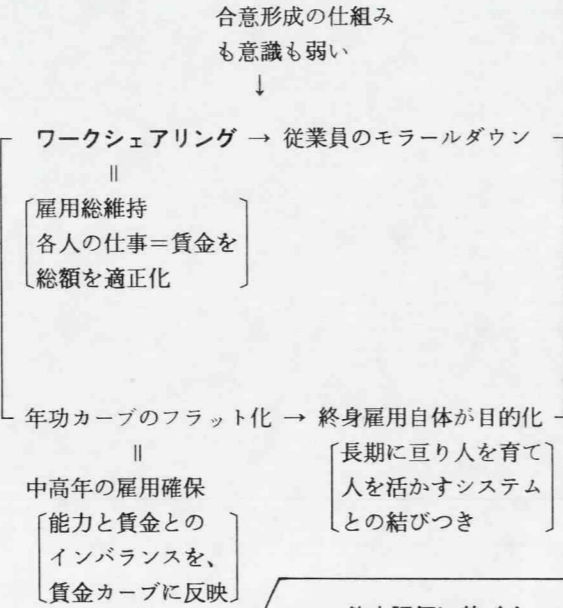 合意形成の仕組み
も意識も弱い
↓
ワークシェアリング → 従業員のモラールダウン
||
雇用総維持
各人の仕事=賃金を
総額を適正化
年功カーブのフラット化 → 終身雇用自体が目的化
||
中高年の雇用確保
能力と賃金との
インバランスを、
賃金カーブに反映
長期に亘り人を育て
人を活かすシステム
との結びつき